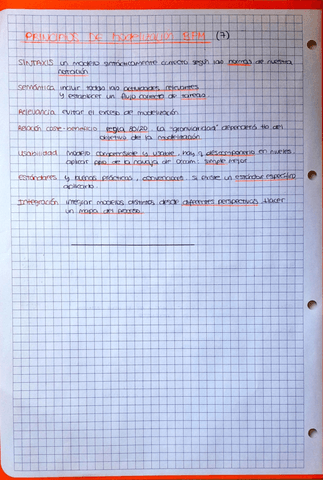 PRINCIPIOS DE MODELADO BPM (7)
SINTAXIS un modelo sintácticamente correcto según las normas de nuestra
notación
Semántica incluir todas las actividades relevantes
y establecer un flujo correcto de tareas
Relevancia evitar el exceso de modelización
Relación coste-beneficio regla 80/20. La "granularidad" dependerá del
objetivo de la modelización
Usabilidad Modelo comprensible y usable, hay q descomponerlo en niveles
aplicar ppio de la navaja de Occam: simple mejor
Estándares y buenas prácticas, convenciones. Si existe un estándar específico
aplicarlo
Integración integrar modelos distintos desde diferentes perspectivas. Hacer
un mapa del proceso